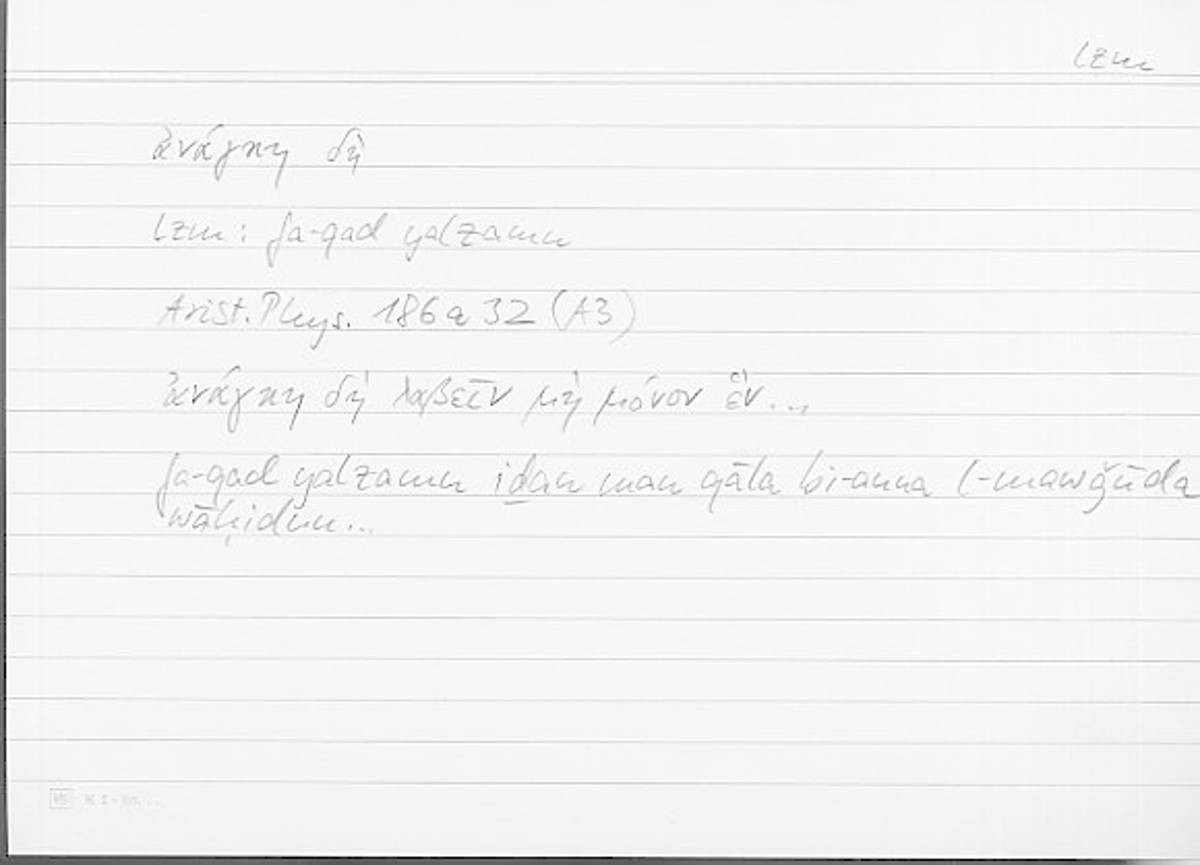 lzm
ἀνάγκη δὴ
lzm: fa-qad yalzamu
Arist. Phys. 186 a 32 (A3)
ἀνάγκη δὴ λαβεῖν μὴ μόνον ἓν...
fa-qad yalzamu iḏan man qāla bi-anna l-mawǧūda
wāḥidun...